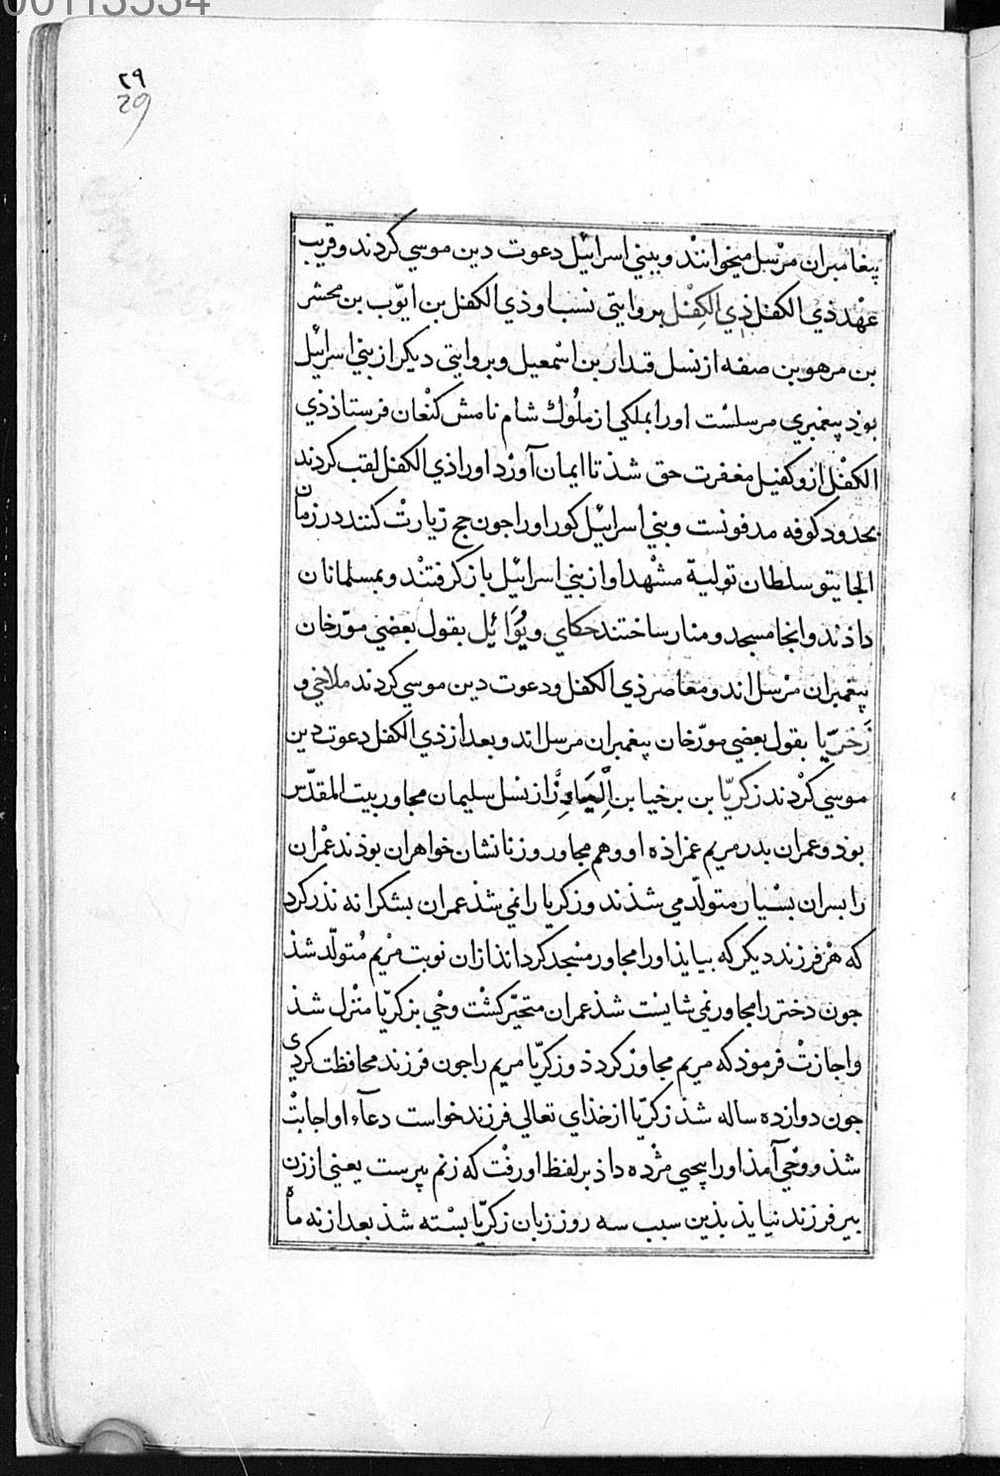 00113534
٢٩
29
پیغامبران مرْسل میخوانند و ببنی اسرائیل دعوت دین موسی کردند و قریب
عهْد ذی الکفل ذی الکِفْل بروایتی نسب او ذی الکفل بن ایوّب بن محشر
بن مرهو بن صفه از نسل قدار بن اسْمعیل و بروایتی دیکر از بنی اسرائیل
بوذ پیغمبری مرسلسْت اورا بملکی از ملُوك شام نامش کنْعان فرستاذ ذی
الکفْل ازو کفیل مغفرت حق شذ تا ایمان آورْد اورا ذی الکفل لقب کردند
بحدود کوفه مدفونست و بنی اسرائیل کور اورا جون حج زیارتْ کنند در زمان
الجایتو سلطان تولیة مشْهد او از بنی اسرائیل باز کرفتنْد و بمسلمانان
داذند و انجا مسجد و منار ساختند حکای و یُوَائیل بقول بعضی مورّخان
پیغمبران مرْسل اند و معاصر ذی الکفل و دعوت دین موسی کردند ملاخی و
زَخرّیا بقول بعضی مورّخان پیغمبران مرسل اند و بعد از ذی الکفل دعوت دین
موسی کرْدند زکریّا بن برخیا بن از نسل سلیمان مجاور بیت المقدّس
بوذ و عمران بدر مریم عمزاذه او و هم مجاور و زنانشان خواهران بوذند عمْران
را بسران بسْیار متولّد می شذند و زکریا را نمی شذ عمران بشکرانه نذر کرد
که هرْ فرزند دیکر که بیایذ اورا مجاور مسْجد کرداند ازان نوبت مرْیم مُتولّد شذ
جون دختر را مجاور نمی شایست شذ عمران متحیّر کشْت وحْی بزکریّا متْزل شذ
و اجازتْ فرموذ که مریم مجاورْ کردذ و زکریّا مریم را جون فرزند محافظت کردی
جون دوازده ساله شذ زکریّا از خذای تعالی فرزند خواست دعاء او اجابتْ
شذ و وحْی آمذ اورا بیحیی مژْده داذ بر لفظ او رفْت که زنم پیرست یعنی از زن
بیر فرزند نیایذ بذین سبب سه روز زبان زکریّا بسْته شذ بعد از نه ماه